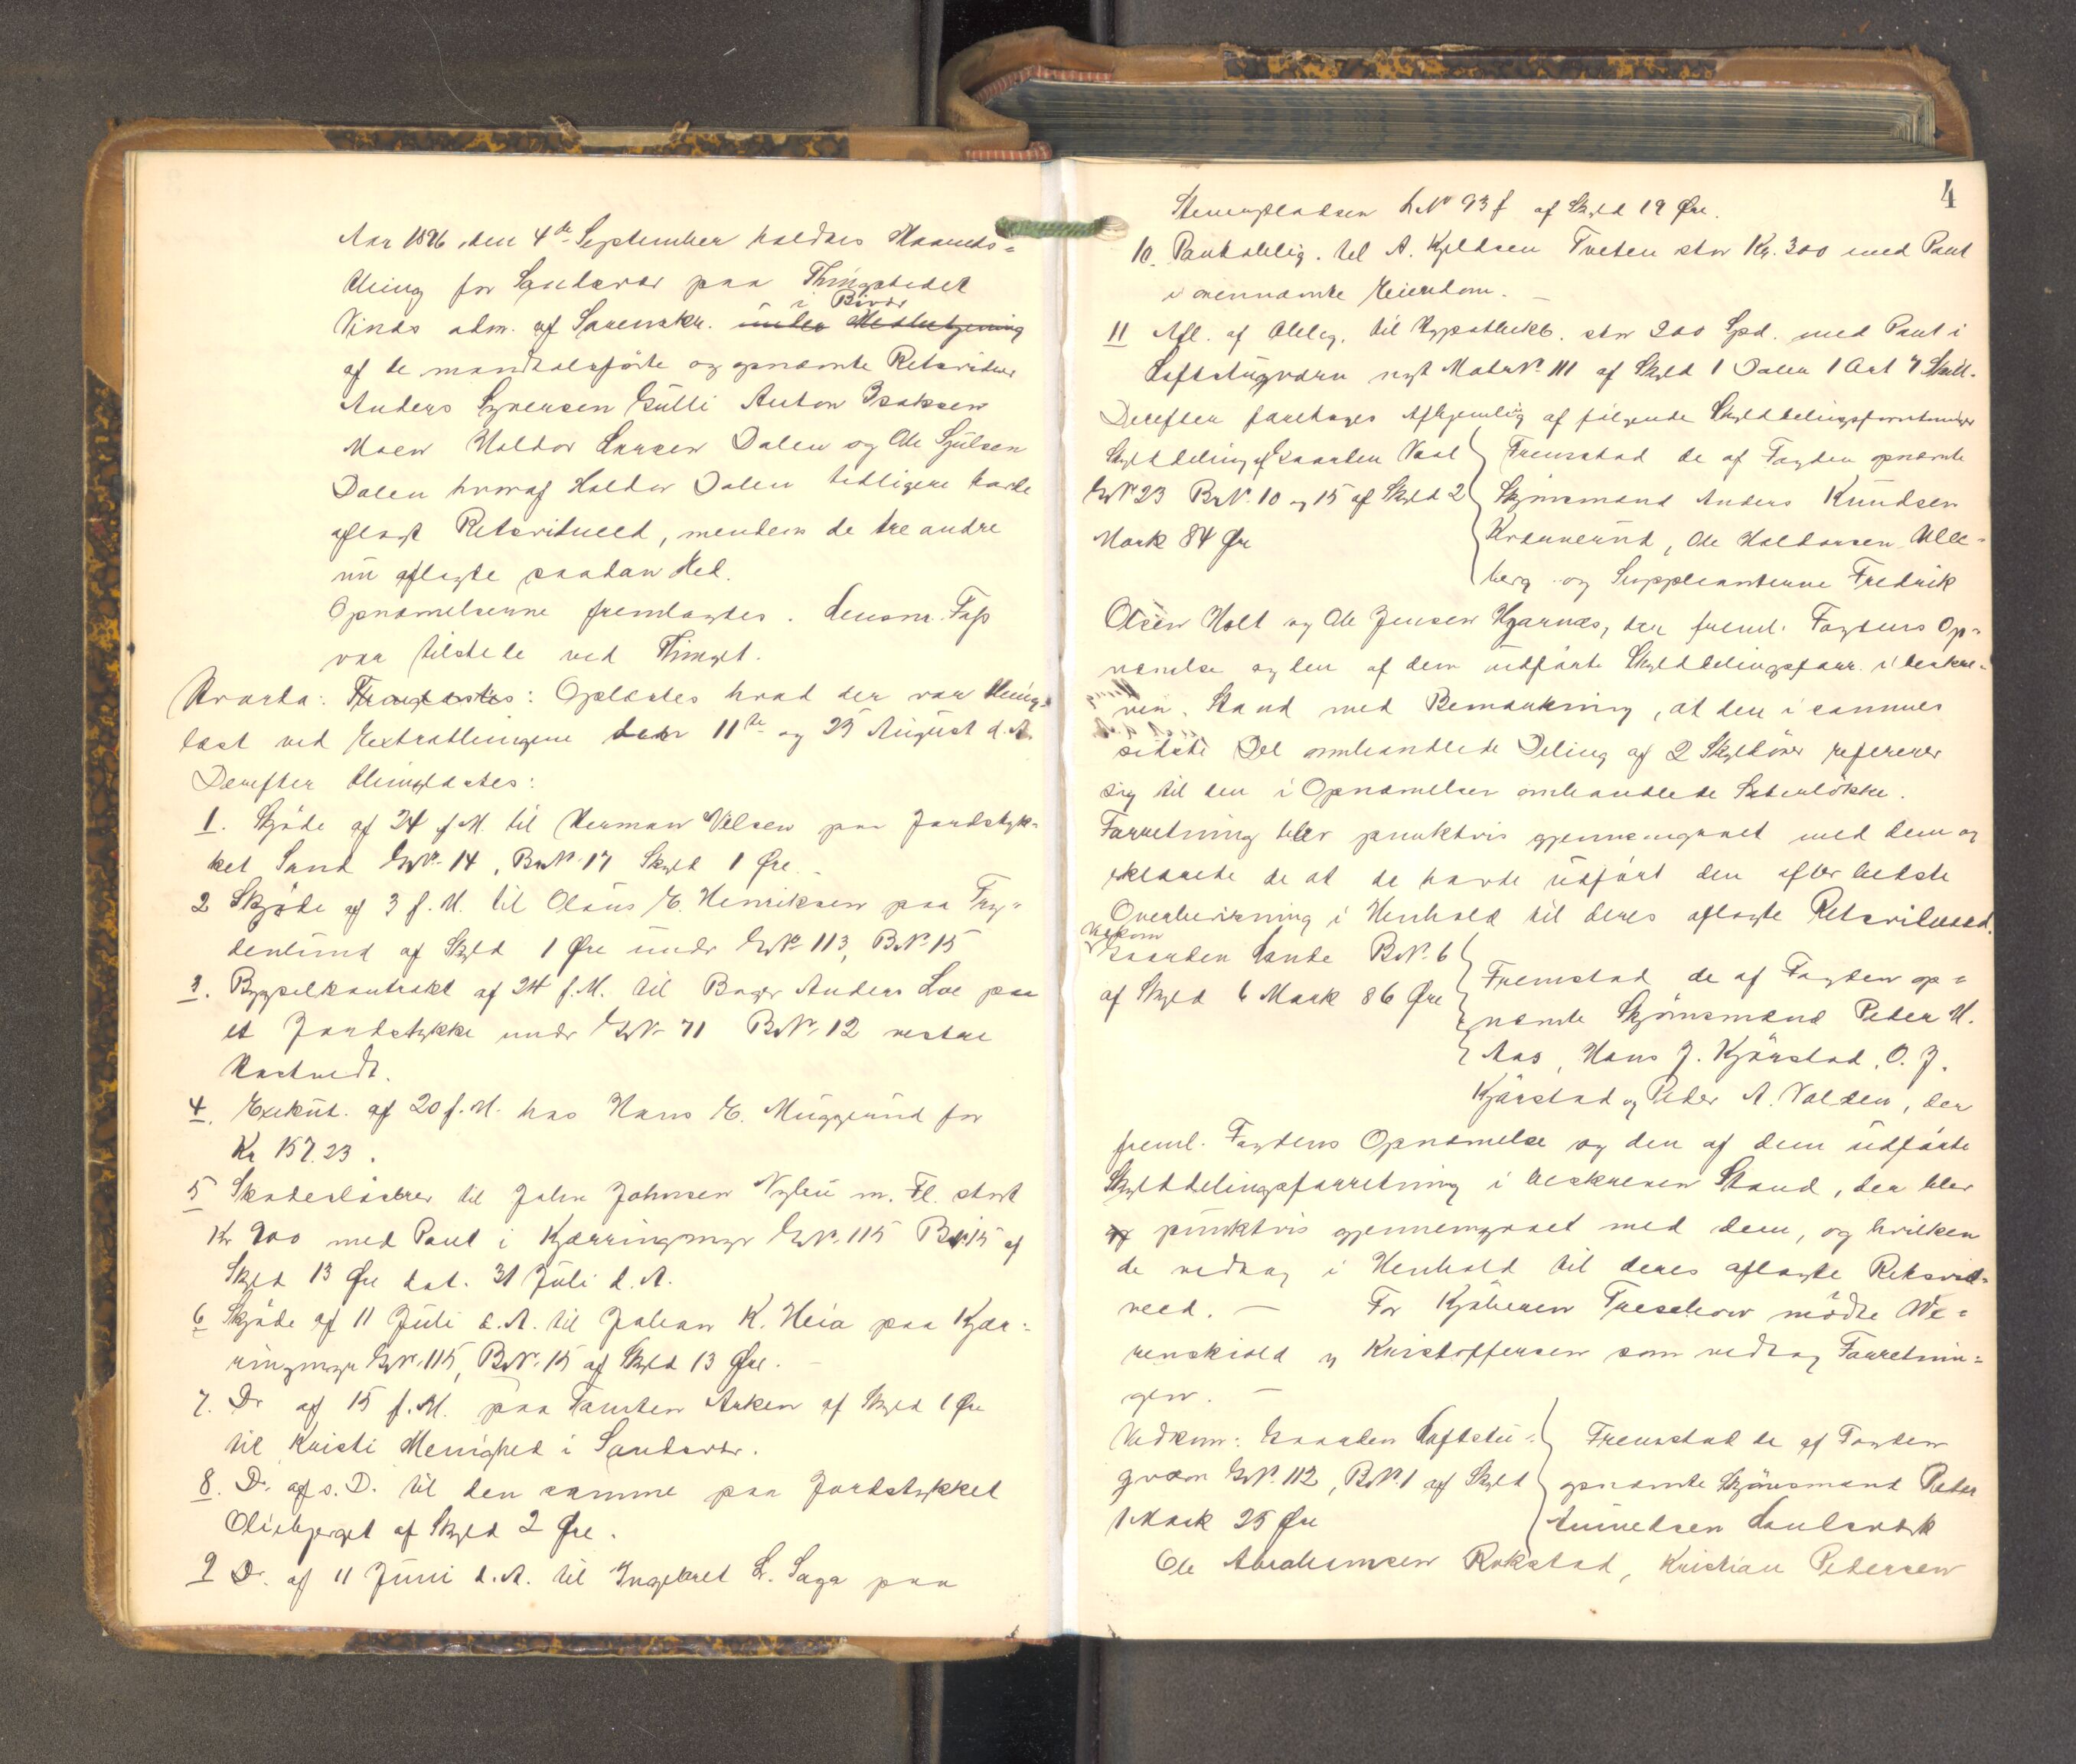 Aar 1896, den 4de September holdtes Maaneds-
thing for Sandsvær paa Thingstedet
Vinds adm. af Sorenskr. under Medbetjening
i Bivær
af de mandtalsførte og opnævnte Retsvidner
Anders Syversen Gulli Anton Isaksen
Moen Haldor Larsen Dalen og Ole Sjulsen
Dalen hvoraf Haldor Dalen tidligere havde
aflagt Retsvidneed, mendens de tre andre
nu aflagde saadan Ed.
Opnævnelserne fremlagdes. Lensm. Fass
var tilstede ved Thinget.
Hvorda: Fremlagdes: Oplæstes hvad der var thing-
læst ved Extrathingene den 11te og 25 August d. A.
Derefter thinglæstes:
1. Skjøde af 24 f. M. til Herman Nilsen paa Jordstyk-
ket Sand GNr. 14, BrNr. 17 Skyld 1 Øre.
2 Skjøde af 3 f. M. til Olaus E. Henriksen paa Fry-
denlund af Skyld 1 Øre under GNr. 113, BNr. 15
3. Bygselkontrakt af 24 f. M. til Bager Anders Loe paa
et Jordstykke under GNr. 71 BNr. 12 vestre
Hostvedt.
4. Exekut. af 20 f. M. hos Hans E. Muggerud for
Kr 157.23.
5 Skadesløsbrev til John Johnsen Nyhus m. Fl. stort
Kr 900 med Pant i Kjærringmyr GNr. 115 BNr 15 af
Skyld 13 Øre dat. 31 Juli d. A.
6 Skjøde af 11 Juli d. A. til Johan K. Heia paa Kjær-
ringmyr GNr. 115, BNr. 15 af Skyld 13 Øre.
7. Do af 15 f. M. paa Tomten Arken af Skyld 1 Øre
til Kristi Menighed i Sandsvær.
8. Do. af s. D. til den samme paa Jordstykket
Oliebjerget af Skyld 2 Øre.
9 Do. af 11 Juni d. A. til Ingebret L. Saga paa
4
Stenerpladsen LNr 93 f af Skyld 19 Øre.
10. Pantoblig. til A. Kjeldsen Tveten stor Kr. 300 med Pant
i ovennævnte Eiendom.
11 Afl. af Oblig. til Hypothekb. stor 200 Spd. med Pant i
Loftstugværn nyt MatrNr. 111 af Skyld 1 Daler 1 Ort 7 Skill.
Derefter foretages Afhjemling af følgende Skylddelingsforretninger
Skylddeling af Gaarden
GNr 23 BrNr. 10 og 15 af Skyld 2
Mark 84 Øre
Fremstod de af Fogden opnævnte
Skjønsmænd Anders Knudsen
Kraverud, Ole Haldorsen Ulle-
berg og Suppleanterne Fredrik
Olsen Holt og Ole Jensen Hjarnæs, der freml. Fogdens Op-
nævnelse og den af dem udførte Skylddelingsforr. i beskre-
ven Stand med Bemærkning, at den i sammes
sidste Del omhandlede Deling af 2 Skyldører refererer
sig til den i Opnævnelsen omhandlede Sæterløkke.
Forretning blev punktvis gjennemgaaet med dem og
erklærede de at de havde udført den efter bedste
Overbevisning i Henhold til deres aflagte Retsvidneed.
Vedkom
Gaarden Lande BNr. 6
af Skyld 6 Mark 86 Øre
Fremstod de af Fogden op-
nævnte Skjønsmænd Peder H.
Aas, Hans J. Kjørstad, O. J.
Kjørstad og Peder A. Volden, der
freml. Fogdens Opnævnelse og den af dem udførte
Skylddelingsforretning i beskreven Stand, der blev
punktvis gjennemgaaet med dem, og hvilken
de vedtog i Henhold til deres aflagte Retsvid-
need. — For Kjøberen Treschow mødte We-
renskiold og Kristoffersen som vedtog Forretnin-
gen. —
Vedkom: Gaarden Loftstu-
gværn GNr. 112, BNr. 1 af Skyld
1 Mark 25 Øre
Fremstod de af Fogden
opnævnte Skjønsmænd Peder
Amundsen
Ole Abrahamsen Rokstad, Kristian Pedersen